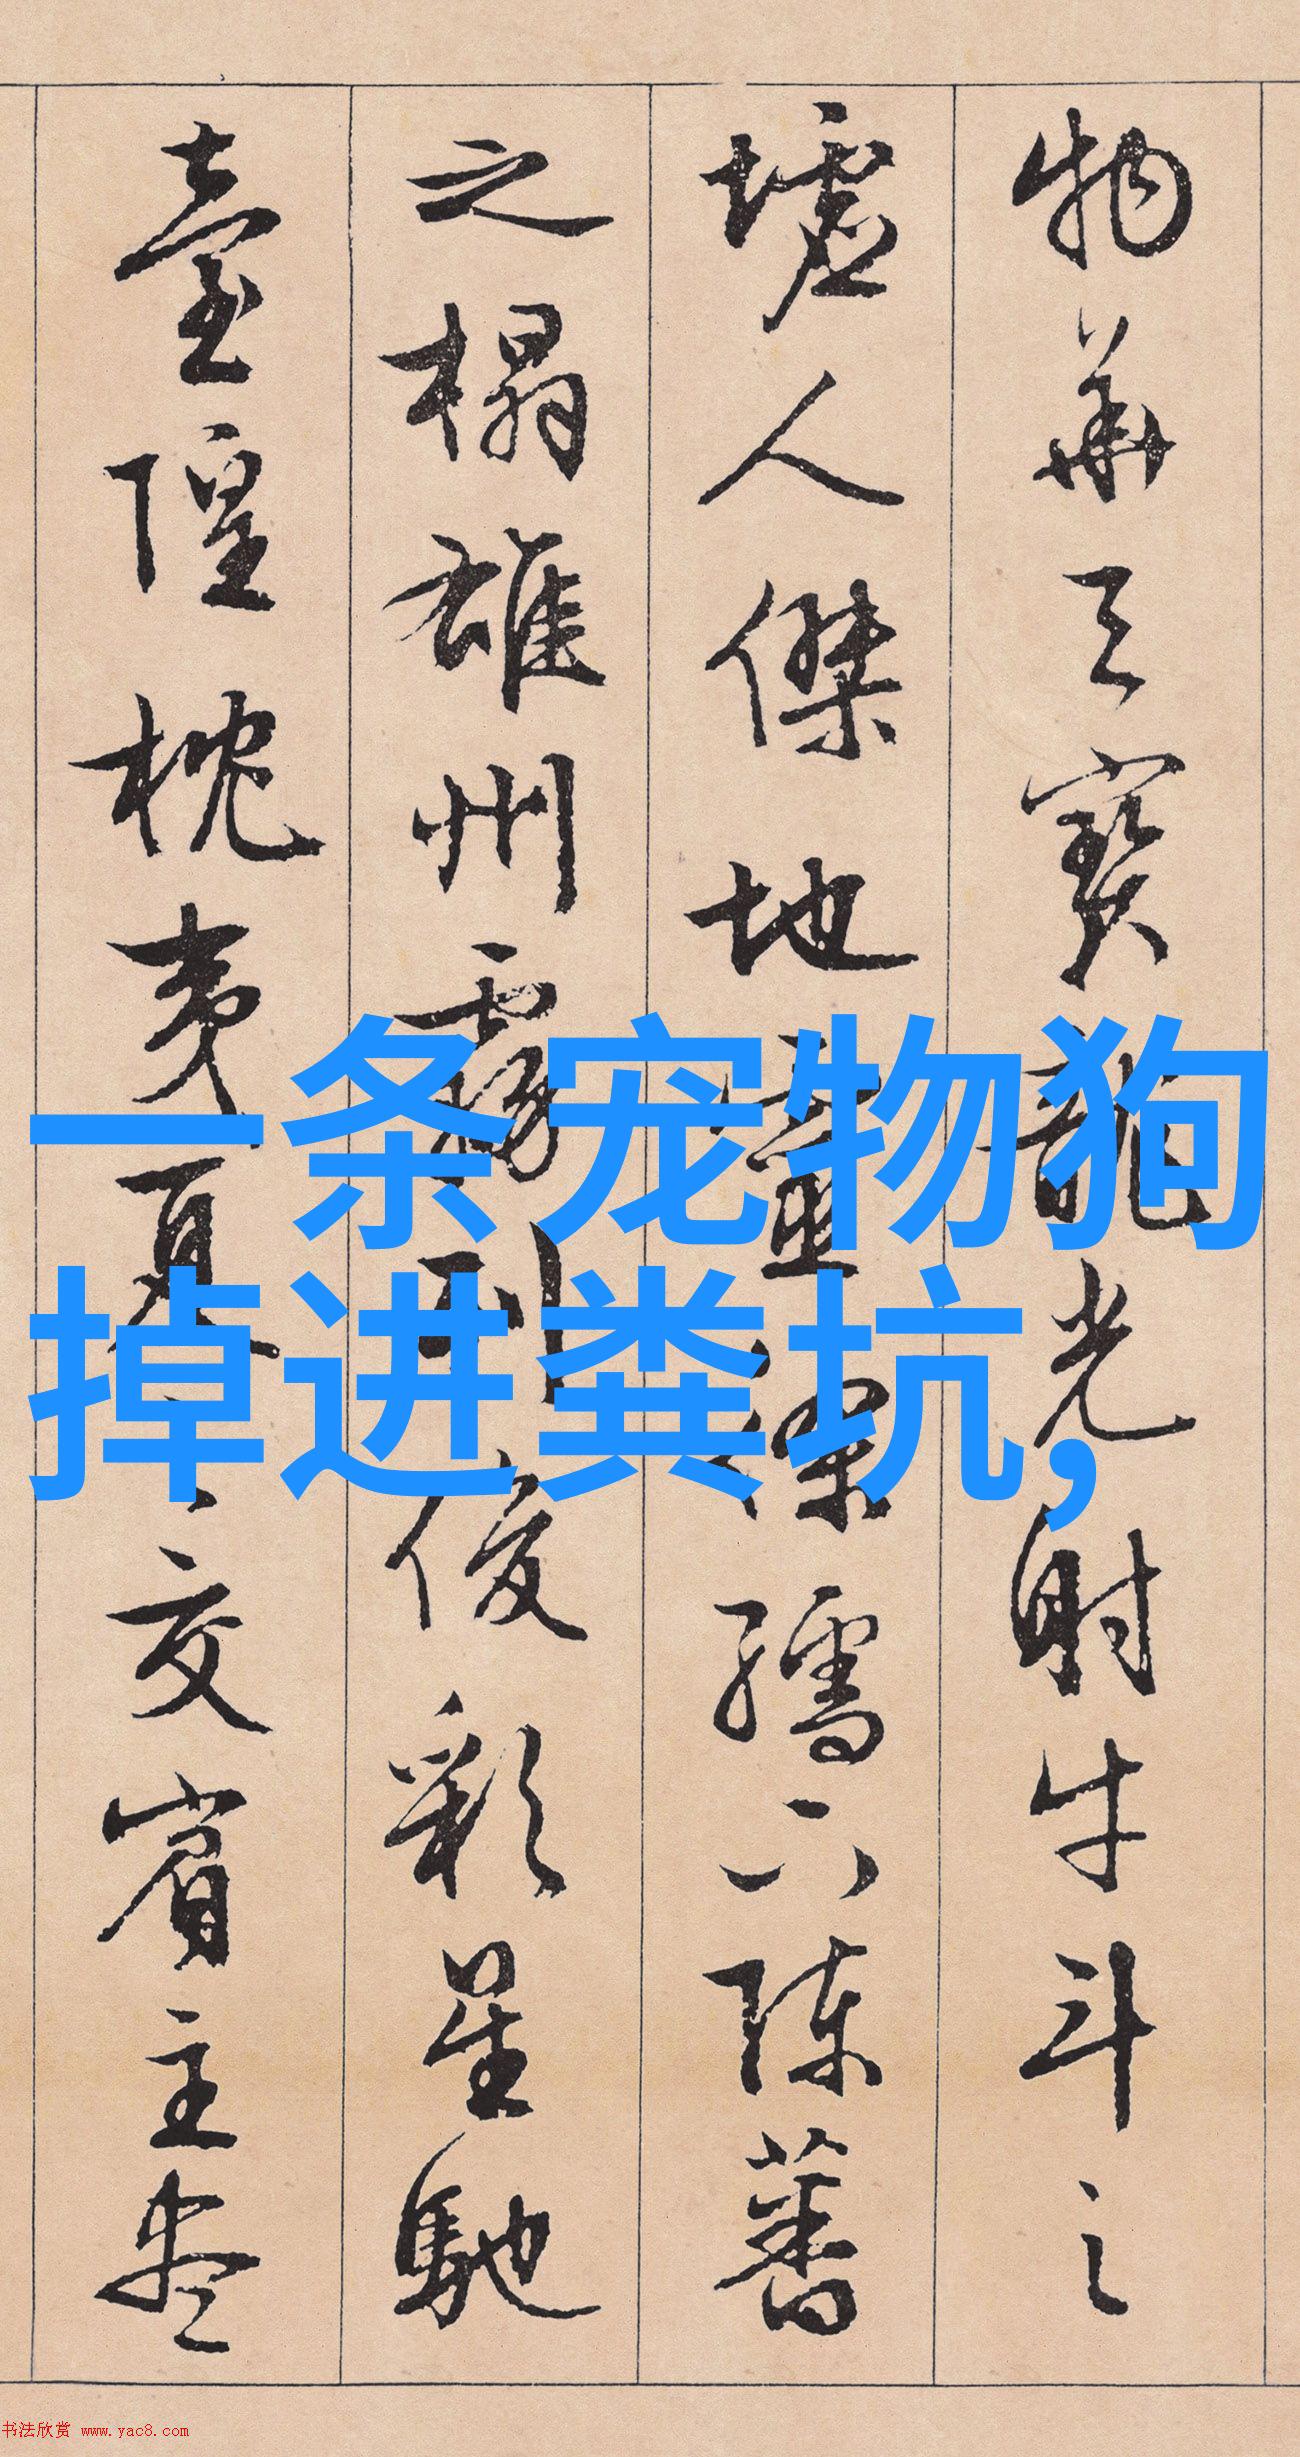 物華天寶龍光射牛斗之
墟人傑地靈徐孺下陳蕃
之榻雄州霧列俊彩星馳
臺隍枕夷夏之交賓主盡
一条宠物狗
掉进粪坑，
书法欣赏 www.yac8.com